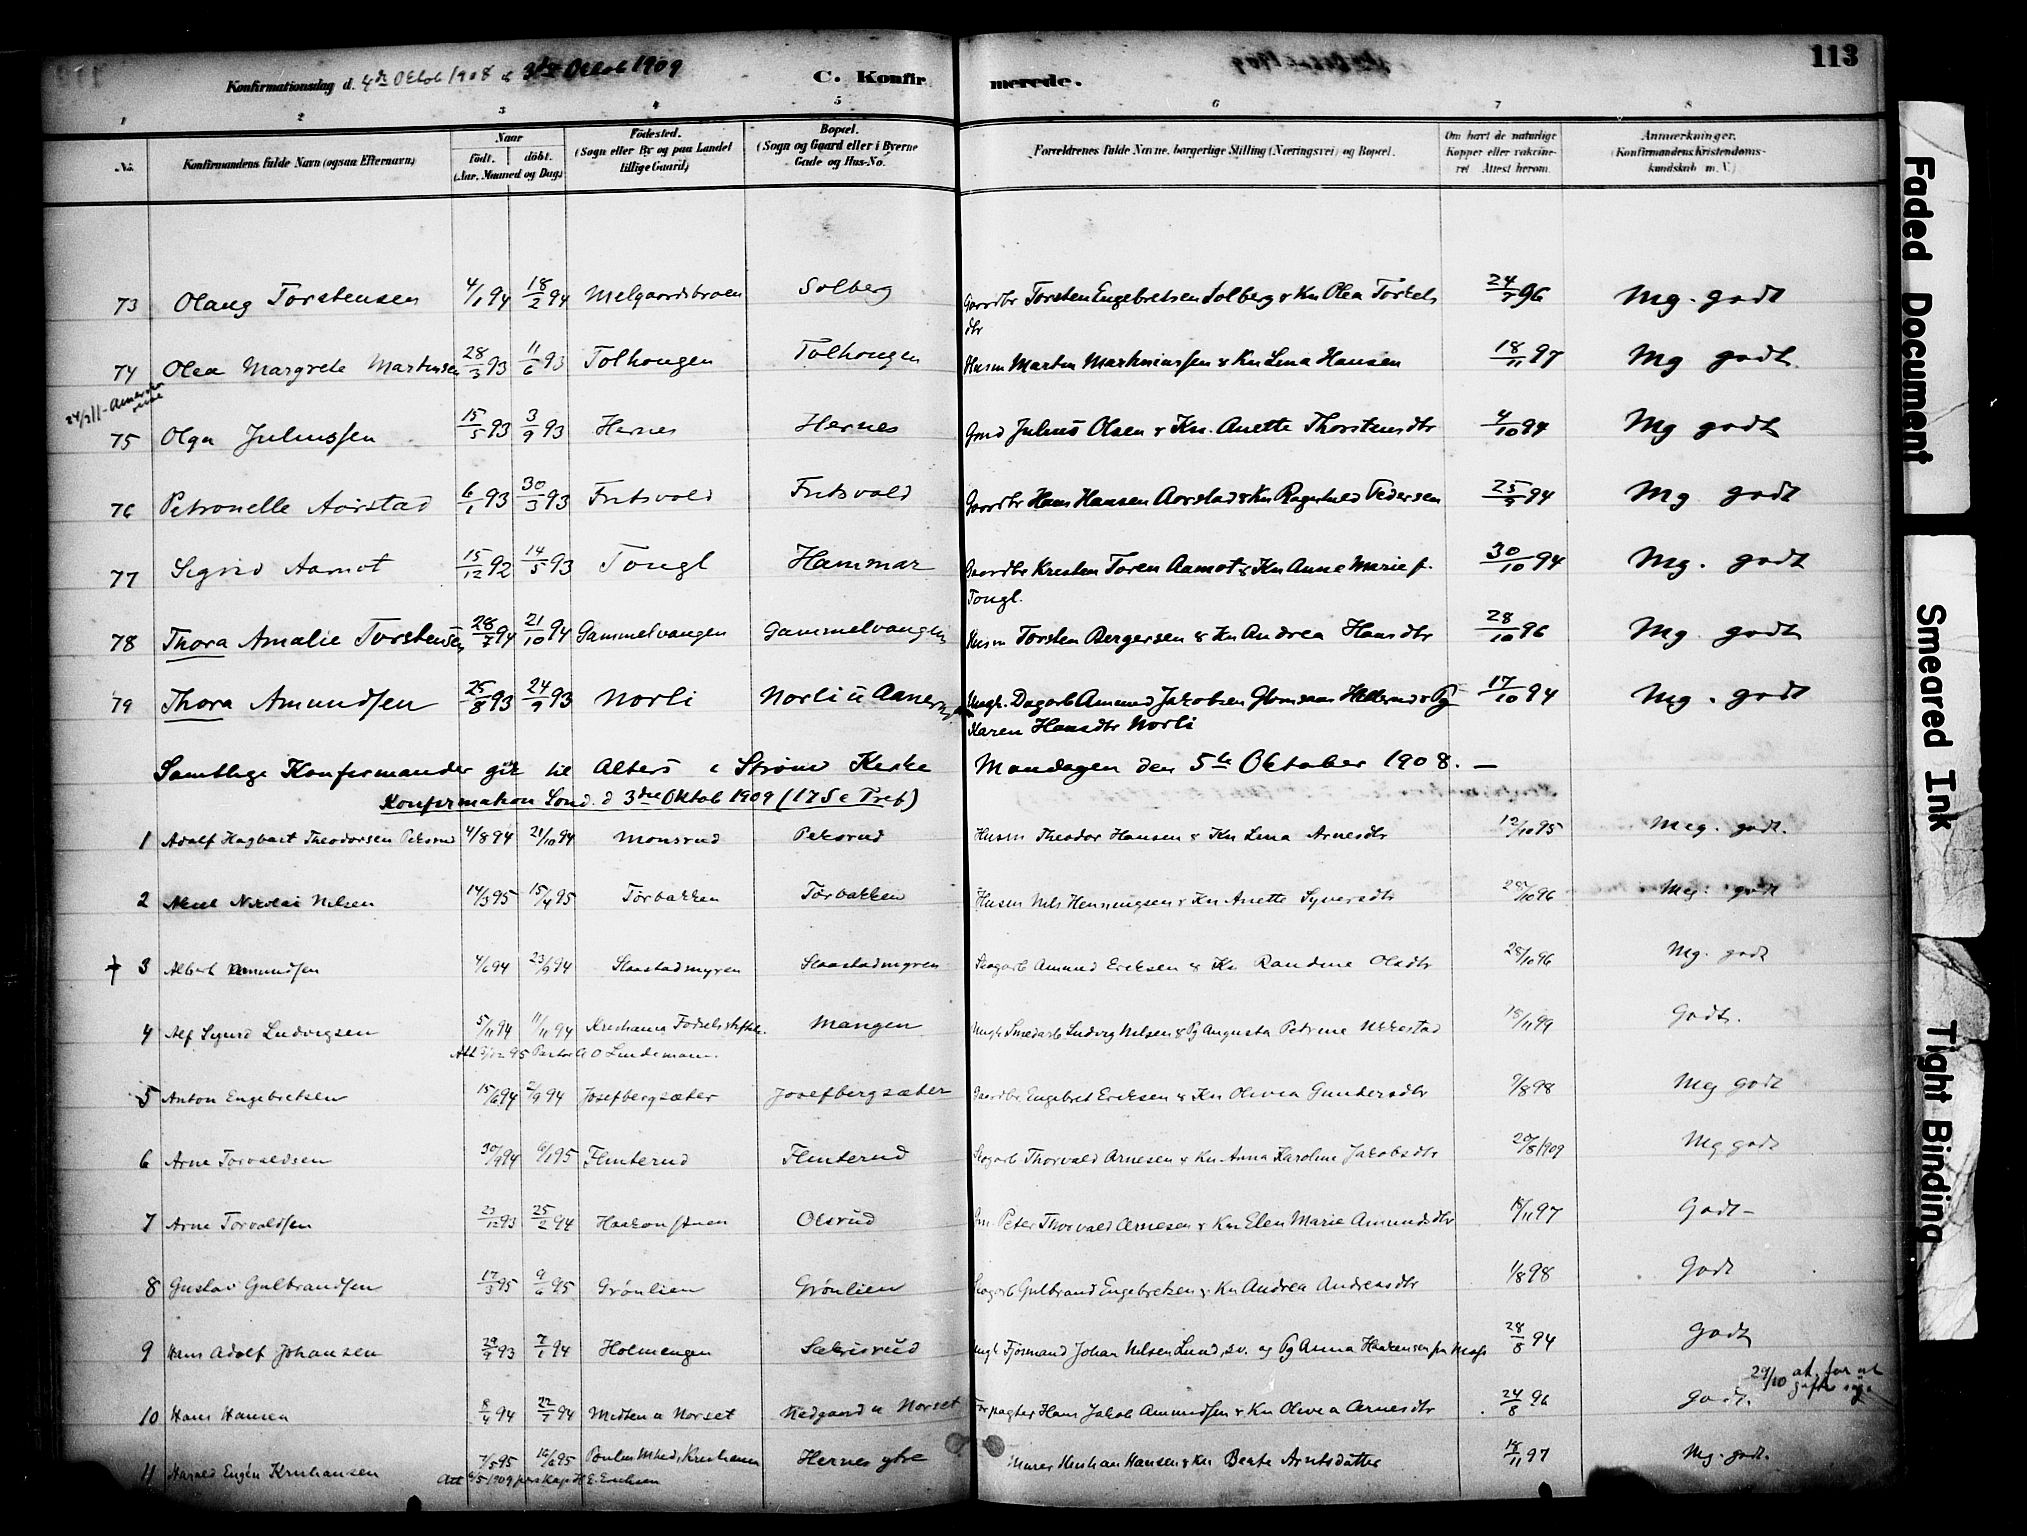 113
Konfirmationsdag d. 4de Oktob 1908 & 3die Oktob 1909 C. Konfirmerede.
1 2 3 4 5 6 7 8
No. Konfirmandens fulde Navn (ogsaa Efternavn) Naar født. døbt. (Aar, Maaned og Dag) Födested. (Sogn eller By og paa Landet tillige Gaard) Bopæl. (Sogn og Gaard eller i Byerne Gade og Hus-No. Forældrenes fulde Navne, borgerlige Stilling (Næringsvei) og Bopæl. Om havt de naturlige Kopper eller vakcineret Attest herom. Anmærkninger. (Konfirmandens Kristendomskundskab m. V.)
73 Olaug Torstensen 4/1 94 18/2 94 Melgaardsbraen Solberg Gaardbr Torsten Engebretsen Solberg & Kn Olea Torkelsdtr 24/7 96 Mg. godt
74 Olea Margrete Martinsen 28/3 93 11/6 93 Tolhougen Tolhougen Husm Martin Martiniussen & Kn Lina Hansen 18/11 97 Mg godt.
24/3 11 - Amerika
75 Olga Juliussen 15/5 93 3/9 93 Hernes Hernes Gmd Julius Olsen & Kn. Anette Thorstensdtr 4/10 94 Mg godt
76 Petronelle Aarstad 6/1 93 30/3 93 Fritsvold Fritsvold Gaardbr Hans Hansen Aarstad & Kn Ragnhild Pedersen 25/9 94 Mg godt
77 Sigrid Aamot 15/12 92 14/5 93 Tongl Hammar Gaardbr Kristen Toren Aamot & Kn Anne Marie f. Tongl. 30/10 94 Mg. godt
78 Thora Amalie Torstensen 28/7 94 21/10 94 Gammelvangen Gammelvangen Husm Torsten Bergersen & Kn Andrea Hansdtr 28/10 96 Mg. godt
79 Thora Amundsen 25/8 93 24/9 93 Norli Norli u Aanerud Ungk. Dagarb Amund Jakobsen & Pg Karen Hansdtr Norli 17/10 94 Mg. godt
Samtlige Konfirmander gik til Alters i Strøm Kirke Mandagen den 5te Oktober 1908. —
Konfirmation Sønd. d 3die Oktob 1909 (17 S e Tref)
1 Adolf Hagbart Theodorsen Peksrud 4/8 94 21/10 94 Monsrud Peksrud Husm Theodor Hansen & Kn Lina Arnesdtr 12/10 95 Meg. godt.
2 Aksel Nikolai Nilsen 14/3 95 15/4 95 Torbakken Torbakken Husm Nils Henningsen & Kn Anette Syversdtr 28/10 96 Meg. godt
3 Albert Amundsen 4/6 94 23/9 94 Slaastadmyren Slaastadmyren Skogarb Amund Eriksen & Kn Randine Olsdtr 28/10 96 Mg. godt
4 Alf Sigurd Ludvigsen 5/11 94 11/11 94 Kristiania Fødselsstiftelse Mangen Ungk Smedarb Ludvig Nilsen & Pg Augusta Petrine Ullestad 18/11 99 Godt.
Att 3/12 95 Pastor A O Lindemann
5 Anton Engebretsen 15/6 94 2/9 94 Josefbergsæter Josefbergsæter Gaardbr Engebret Eriksen & Kn Olivia Gundersdtr 9/8 98 Meg godt
6 Arne Torvaldsen 30/9 94 6/1 95 Flinterud Flinterud Skogarb Thorvald Arnesen & Kn Anna Karoline Jakobsdtr 20/8 1909 Mg godt
7 Arne Torvaldsen 23/12 93 25/2 94 Haakonstuen Olsrud Peter Thorvald Arnesen & Kn Elen Marie Amundsdtr 18/11 97 Godt -
8 Gustav Gulbrandsen 17/3 95 9/6 95 Grönlien Grönlien Skogarb Gulbrand Engebretsen & Kn Andrea Andreasdtr 1/8 98 Godt
9 Hans Adolf Johansen 29/9 93 7/1 94 Holmengen Sætrisrud Ungk Fjøsmand Johan Nilsen Lund, sv. og Pg Anna Haakensen 28/8 94 Godt
10 Hans Hansen 8/4 94 22/7 94 Midten u Norset Nedgaard u Norset Forpagter Hans Jakob Amundsen & Kn Olivia Arnesdtr 24/8 96 Godt. 29/10
11 Harald Eugén Kristiansen 7/5 95 16/6 95 Kristiania Hernes ytre Murer Kristian Hansen & Kn Beate Arntsdatter 18/11 97 Mg. godt.
Att 6/5 1909 H E Eriksen
Faded Document
Smeared Ink
Tight Binding